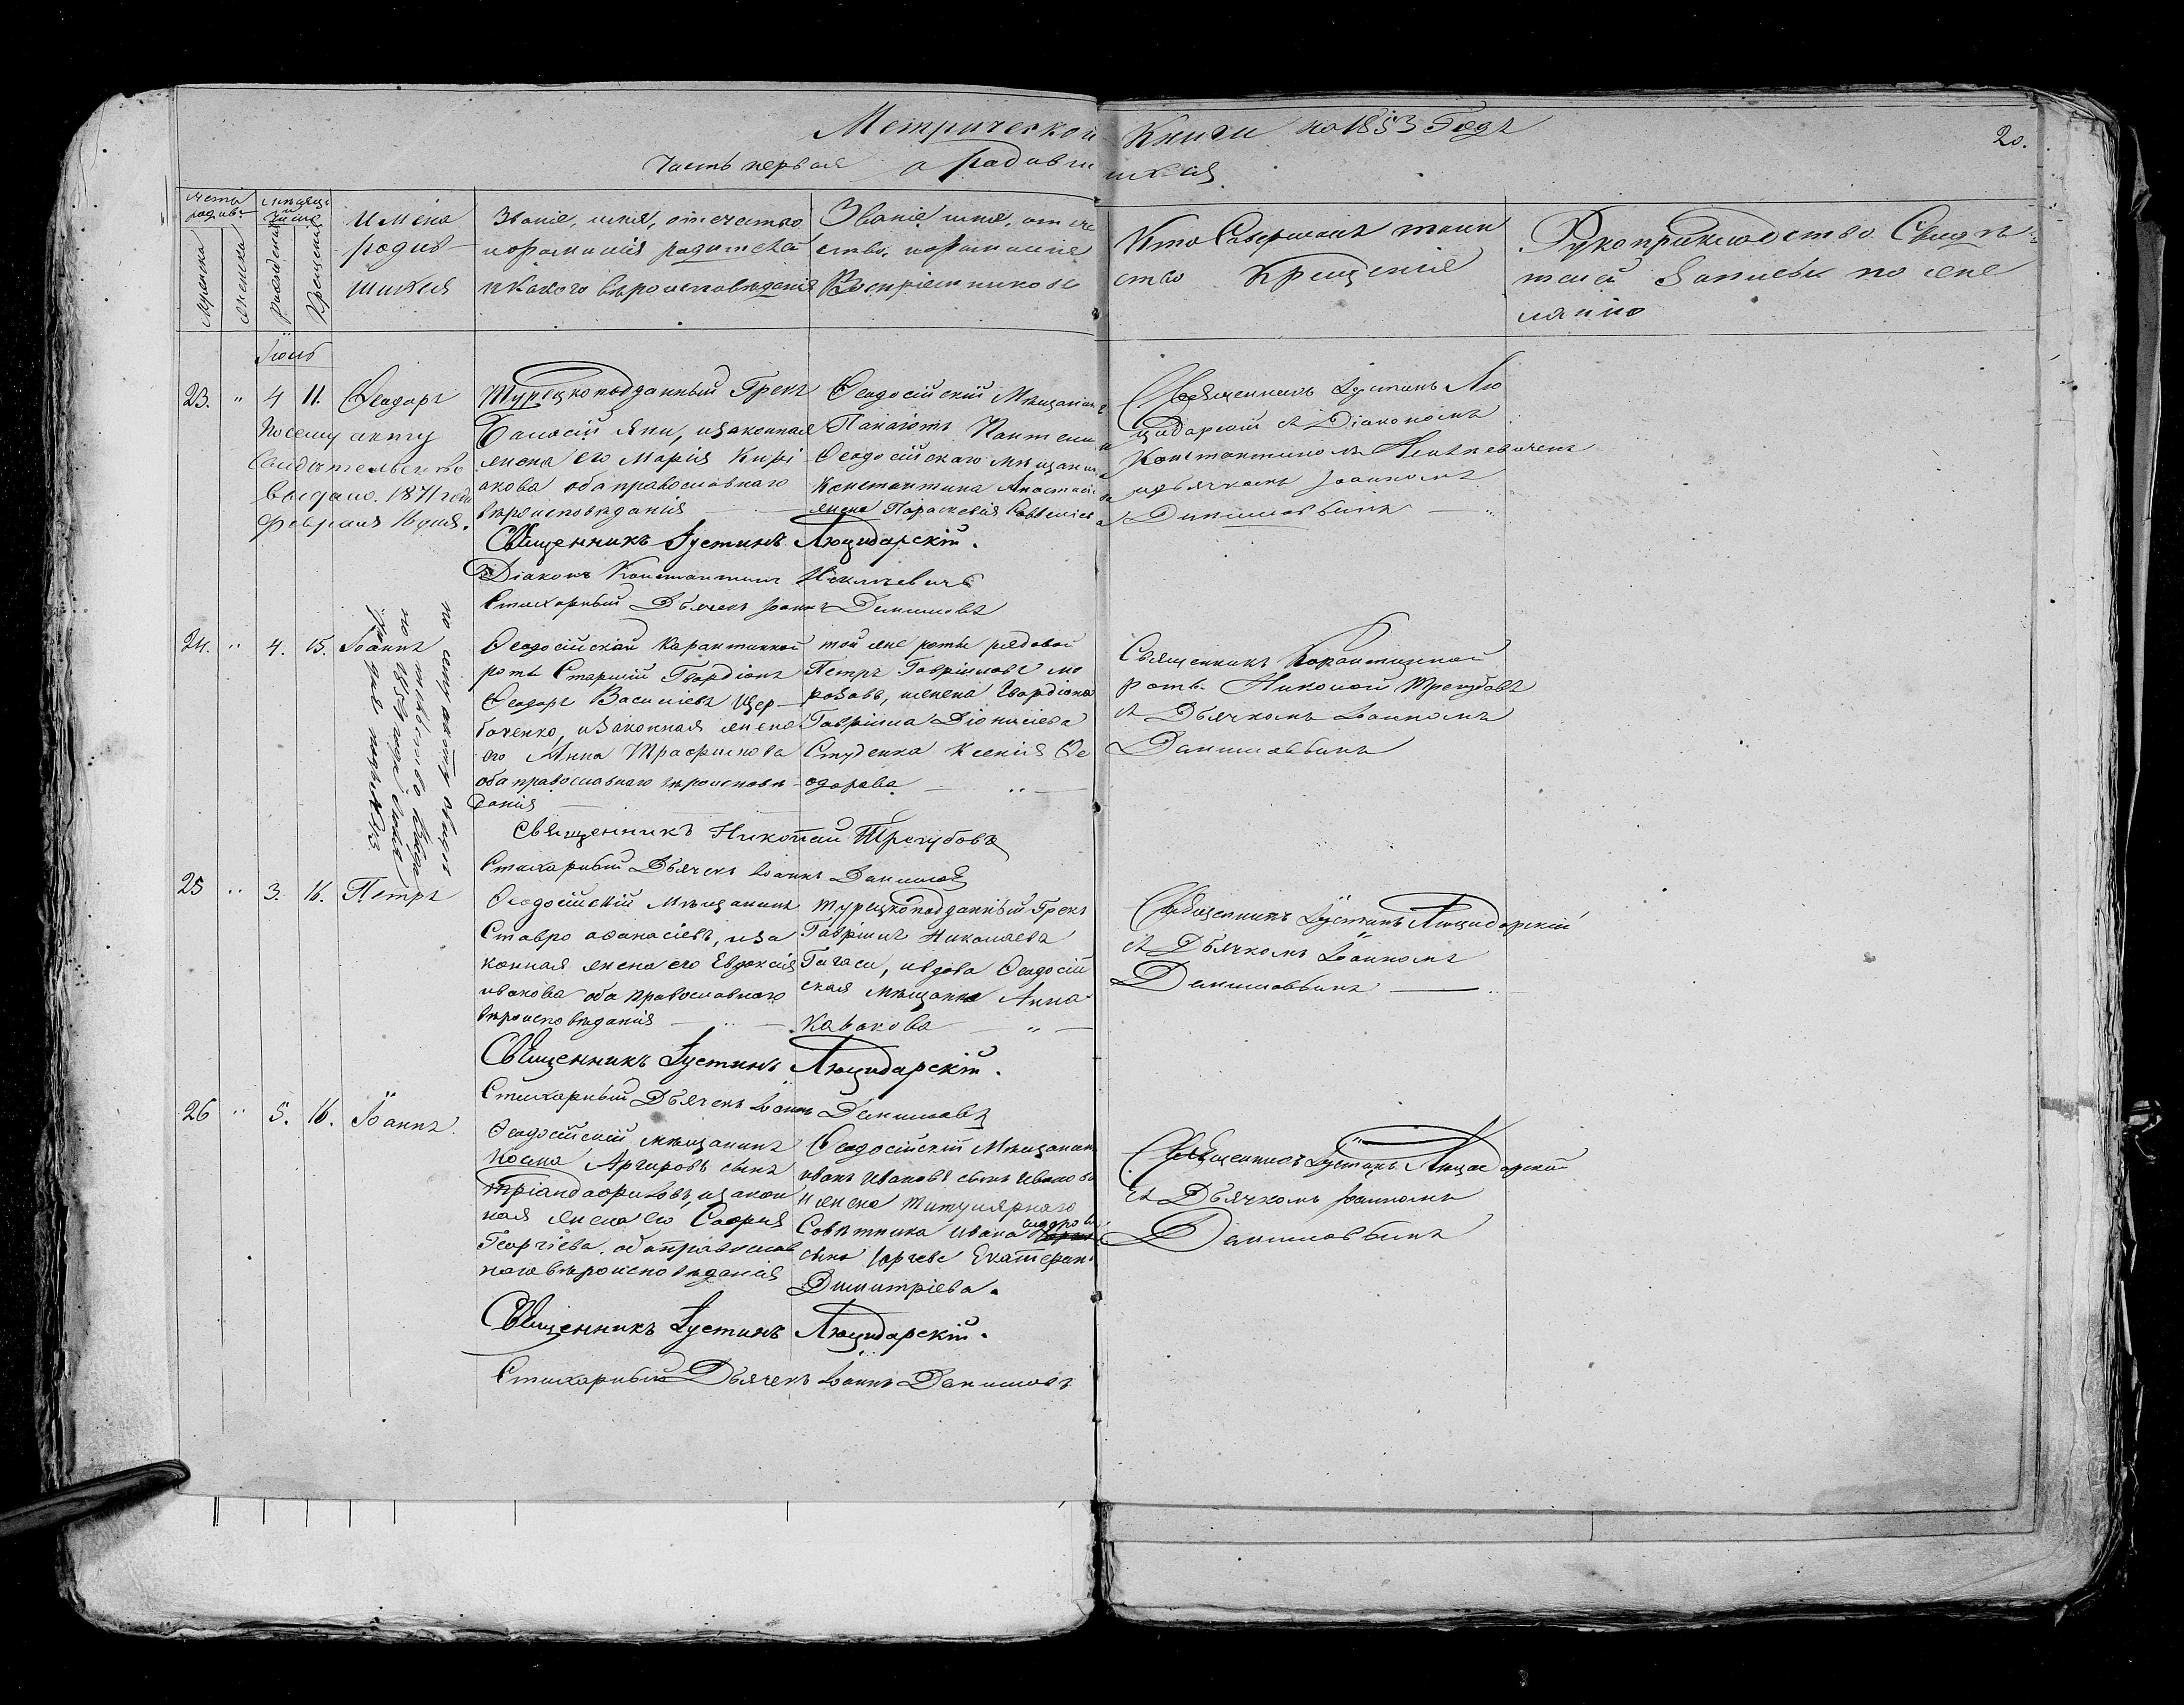 Метрической Книги на 1853 Годъ
20.
Часть первая о родившихся
Имена
родив-
шихся
Званіе, имя, отечество
и фамилія родителей
и какого вѣроисповѣданія
Званіе имя, отече
ство, и фамиліе
Воспріемниковъ
Кто Совершалъ таин
ство Крещенія
Рукоприкладство Свидѣ-
телей Записи по же
ланію
мужеска
женска
рожденія
Крещенія
Іюнь
23. " 4 11. Ѳеодоръ
По сему акту
Свидѣтельство
выдано. 1871 года
Февраля 16 дня.
Турецкоподданный Грекъ
Яни, и законная
жена его Марія Кирі
акова оба православнаго
вѣроисповѣданія
Ѳеодосійскій Мѣщанинъ
Панаіотъ
Ѳеодосійскаго мѣщанина
Константина Анастасіева
жена Параскевія Савельева
Священникъ Іустинъ Лю
цидарскій съ Діакономъ
Константиномъ
и дьячкомъ Іоанномъ
Даниловымъ
Священникъ Іустинъ Люцидарскій.
Діаконъ Константинъ
Стихарный Дьячекъ Іоаннъ Даниловъ
24. " 4. 15. Іоаннъ
по сему акту
Ѳеодосійской Карантинной
роты Старшій Гвардіонъ
Ѳеодоръ Васильевъ Щер-
баченко, и законная жена
его Анна Трофимова
оба православнаго вѣроисповѣ-
данія
той же роты рядовой
Петръ Гавриловъ Мо
розовъ, и жена Гвардіона
Гавріила Діонисіева
Студенка Ксенія Ѳе
одорова
Священникъ Карантинной
роты Николай Трегубовъ
съ Дьячкомъ Іоанномъ
Даниловымъ
Священникъ Николай Трегубовъ
Стихарный Дьячекъ Іоаннъ Даниловъ
25 " 3. 16. Петръ
Ѳеодосійскій Мѣщанинъ
Ставро Аѳанасіевъ, и за
конная жена его Евдокія
Ивакова оба православнаго
вѣроисповѣданія
турецкоподданный Грекъ
Гавріилъ Николаевъ
Гагаси, и вдова Ѳеодосій
ская мѣщанка Анна
Кавакова
Священникъ Іустинъ Люцидарскій
съ Дьячкомъ Іоанномъ
Даниловымъ
Священникъ Іустинъ Люцидарскій.
Стихарный Дьячекъ Іоаннъ Даниловъ
26 " 5. 16. Іоаннъ.
Ѳеодосійскій мѣщанинъ
Косма Аргировъ сынъ
Тріандафиловъ, и закон
ная жена его Софія
Георгіева. оба православ
наго вѣроисповѣданія
Ѳеодосійскій Мѣщанинъ
Иванъ Ивановъ сынъ Ивановъ
и жена титулярнаго
Совѣтника Ивана
сына Екатерина
Димитріева.
Священникъ Іустинъ Люцидарскій
съ Дьячкомъ Іоанномъ
Даниловымъ
Священникъ Іустинъ Люцидарскій.
Стихарный Дьячекъ Іоаннъ Даниловъ